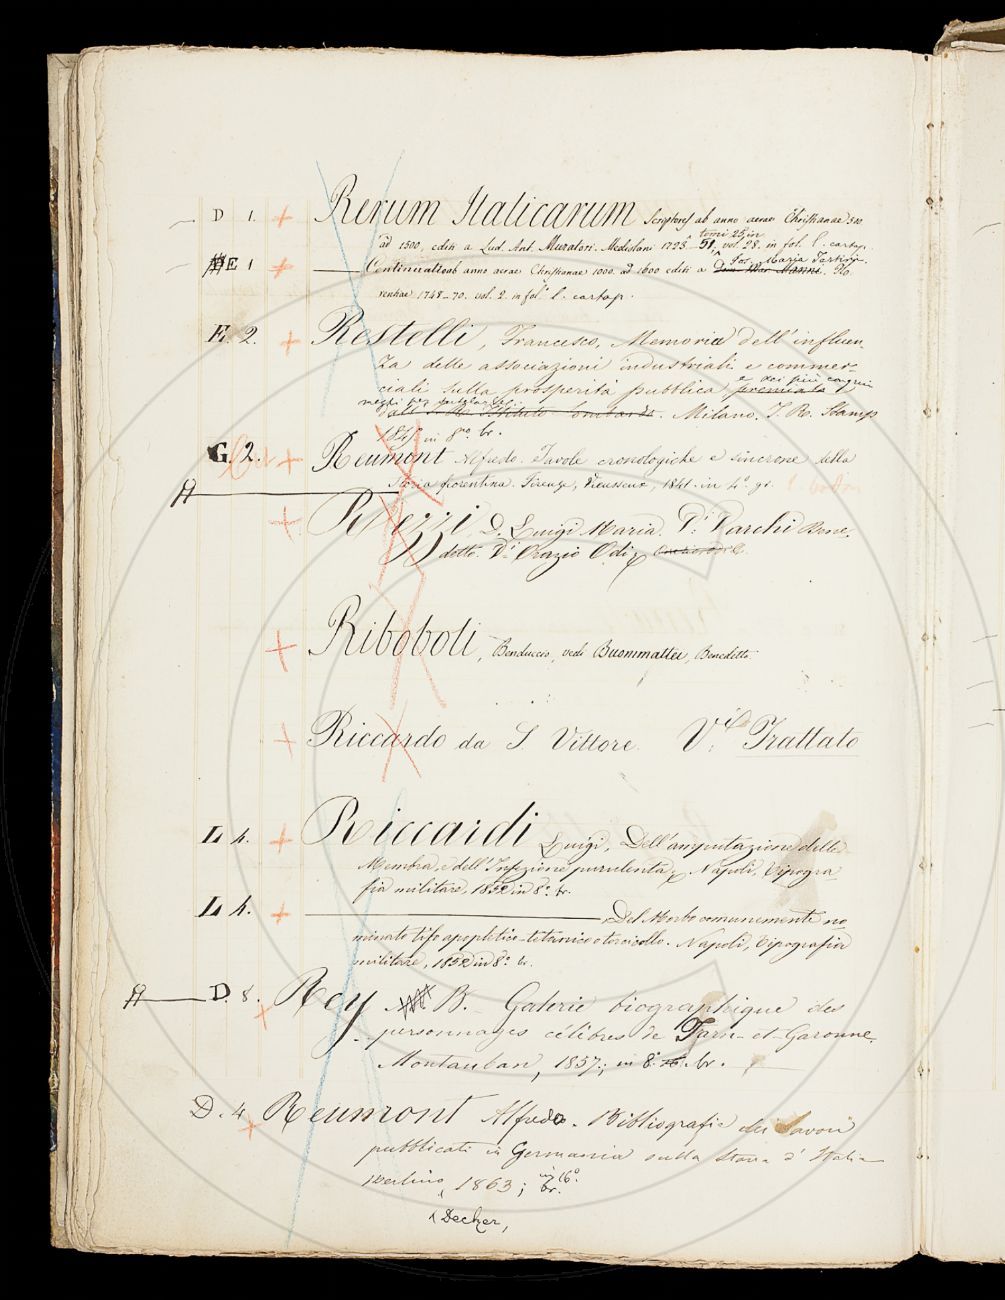 D 1. Rerum Italicarum Scriptores ab anno aerae Christianae 500
tomi 25 in
ad 1500, editi a Lud. Ant. Muratori. Mediolani 1723-51, vol. 28. in fol. l. cartap.
Jos. Maria Tartini.
E 1 Continuatio ab anno aerae Christianae 1000. ad 1600 editi a Manni. Flo
rentiae 1748-70. vol. 2. in fol. l. cartap.
E. 2. Restelli, Francesco, Memoria dell'influen
za delle associazioni industriali e commer-
ciali sulla prosperità pubblica, e dei più congrui
mezzi per tutelarle. premiata
dall' I. R. Istituto Lombardo. Milano, I. R. Stamp
in 8.vo br.
G. 2. Reumont Alfredo. Tavole cronologiche e sincrone della
Storia fiorentina. Firenze, Vieusseux, 1841. in 4.o gr.
Rezzi, D. Luigi Maria. V.i Varchi Bene,
detto. V.i Orazio Odi,
Riboboli, Benduccio, vedi Buommattei, Benedetto.
Riccardo da S. Vittore. V. Trattato
L 4. Riccardi Luigi, Dell'amputazione delle
Membra, e dell'Infezione purulenta, Napoli, Tipogra
fia militare, 1852 in 8.o br.
L 4. Del Morbo comunemente no
minato tifo apopletico-tetanico o torcicollo. Napoli, Tipografia
militare, 1852 in 8.o br.
D. 8. Rey B. Galerie biographique des
personnages célèbres de Tarn-et-Garonne.
Montauban, 1857; in 8.o br.
D. 4 Reumont Alfredo. Bibliografia dei Lavori
pubblicati in Germania sulla Storia d'Italia
Berlino, 1863; in 16.o
br.
Decker,